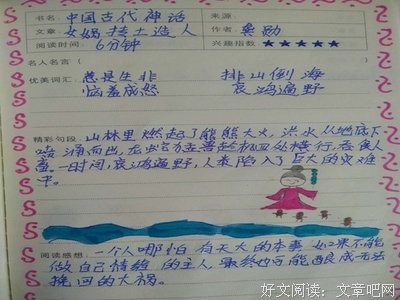 书名：中国古代神话 来源：
文章：女娲抟土造人 作者：袁勋
阅读时间：6分钟 兴趣指数★★★★★
名人名言（ ）
优美词汇： 惹是生非 排山倒海
恼羞成怒 哀鸿遍野
精彩句段：山林里燃起了熊熊大火，洪水从地底下
喷涌而出，龙蛇猛兽 横行，吞食人
畜。一时间，哀鸿遍野，人类陷入了巨大的灾难
中。
阅读感想：一个人哪怕有天大的本事，如果不能
做自己情绪的主人，最终也可能酿成无法
挽回的大祸。
好文阅读：文章吧网